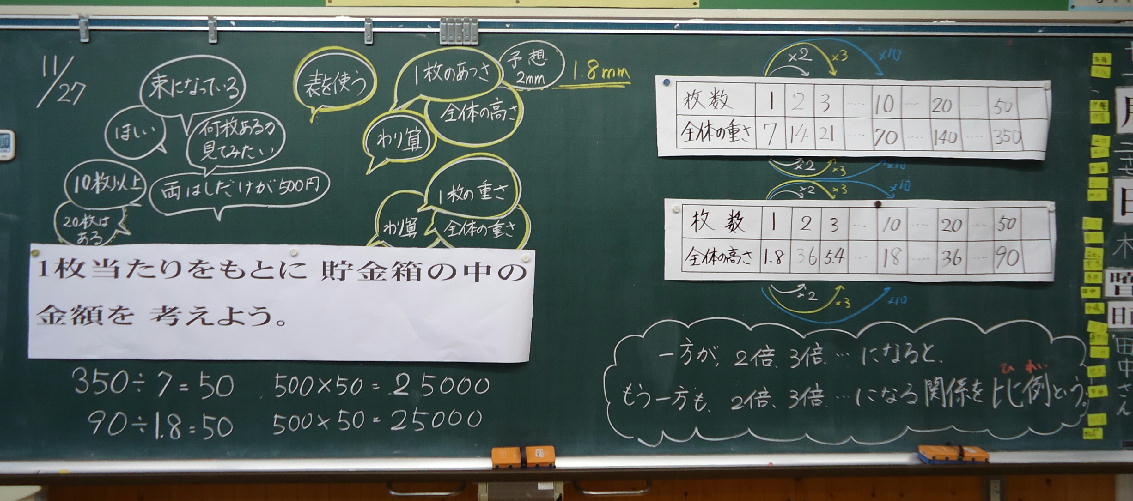 11/27
束になっている
ほしい
何枚あるか
見てみたい
10枚以上
両はしだけが500円
20枚は
ある
表を使う
1枚のあつさ
全体の高さ
わり算
予想
2mm
1.8mm
1枚の重さ
全体の重さ
わり算
1枚当たりをもとに 貯金箱の中の
金額を 考えよう。
350÷7=50 500×50=25000
90÷1.8=50 500×50=25000
×2 ×3 ×10
枚数 1 2 3 … 10 … 20 … 50
全体の重さ 7 14 21 … 70 … 140 … 350
×2 ×3 ×10
×2 ×3 ×10
枚数 1 2 3 … 10 … 20 … 50
全体の高さ 1.8 3.6 5.4 … 18 … 36 … 90
×2 ×3 ×10
一方が、2倍、3倍…になると、
もう一方も、2倍、3倍…になる関係を比例という
ひれい